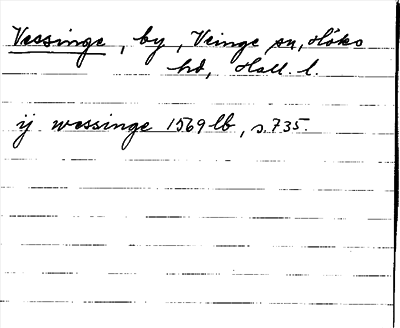 Vessinge, by, Veinge sn, Höks
hd, Hall. l.
ij wessinge 1569 lb, s. 735.